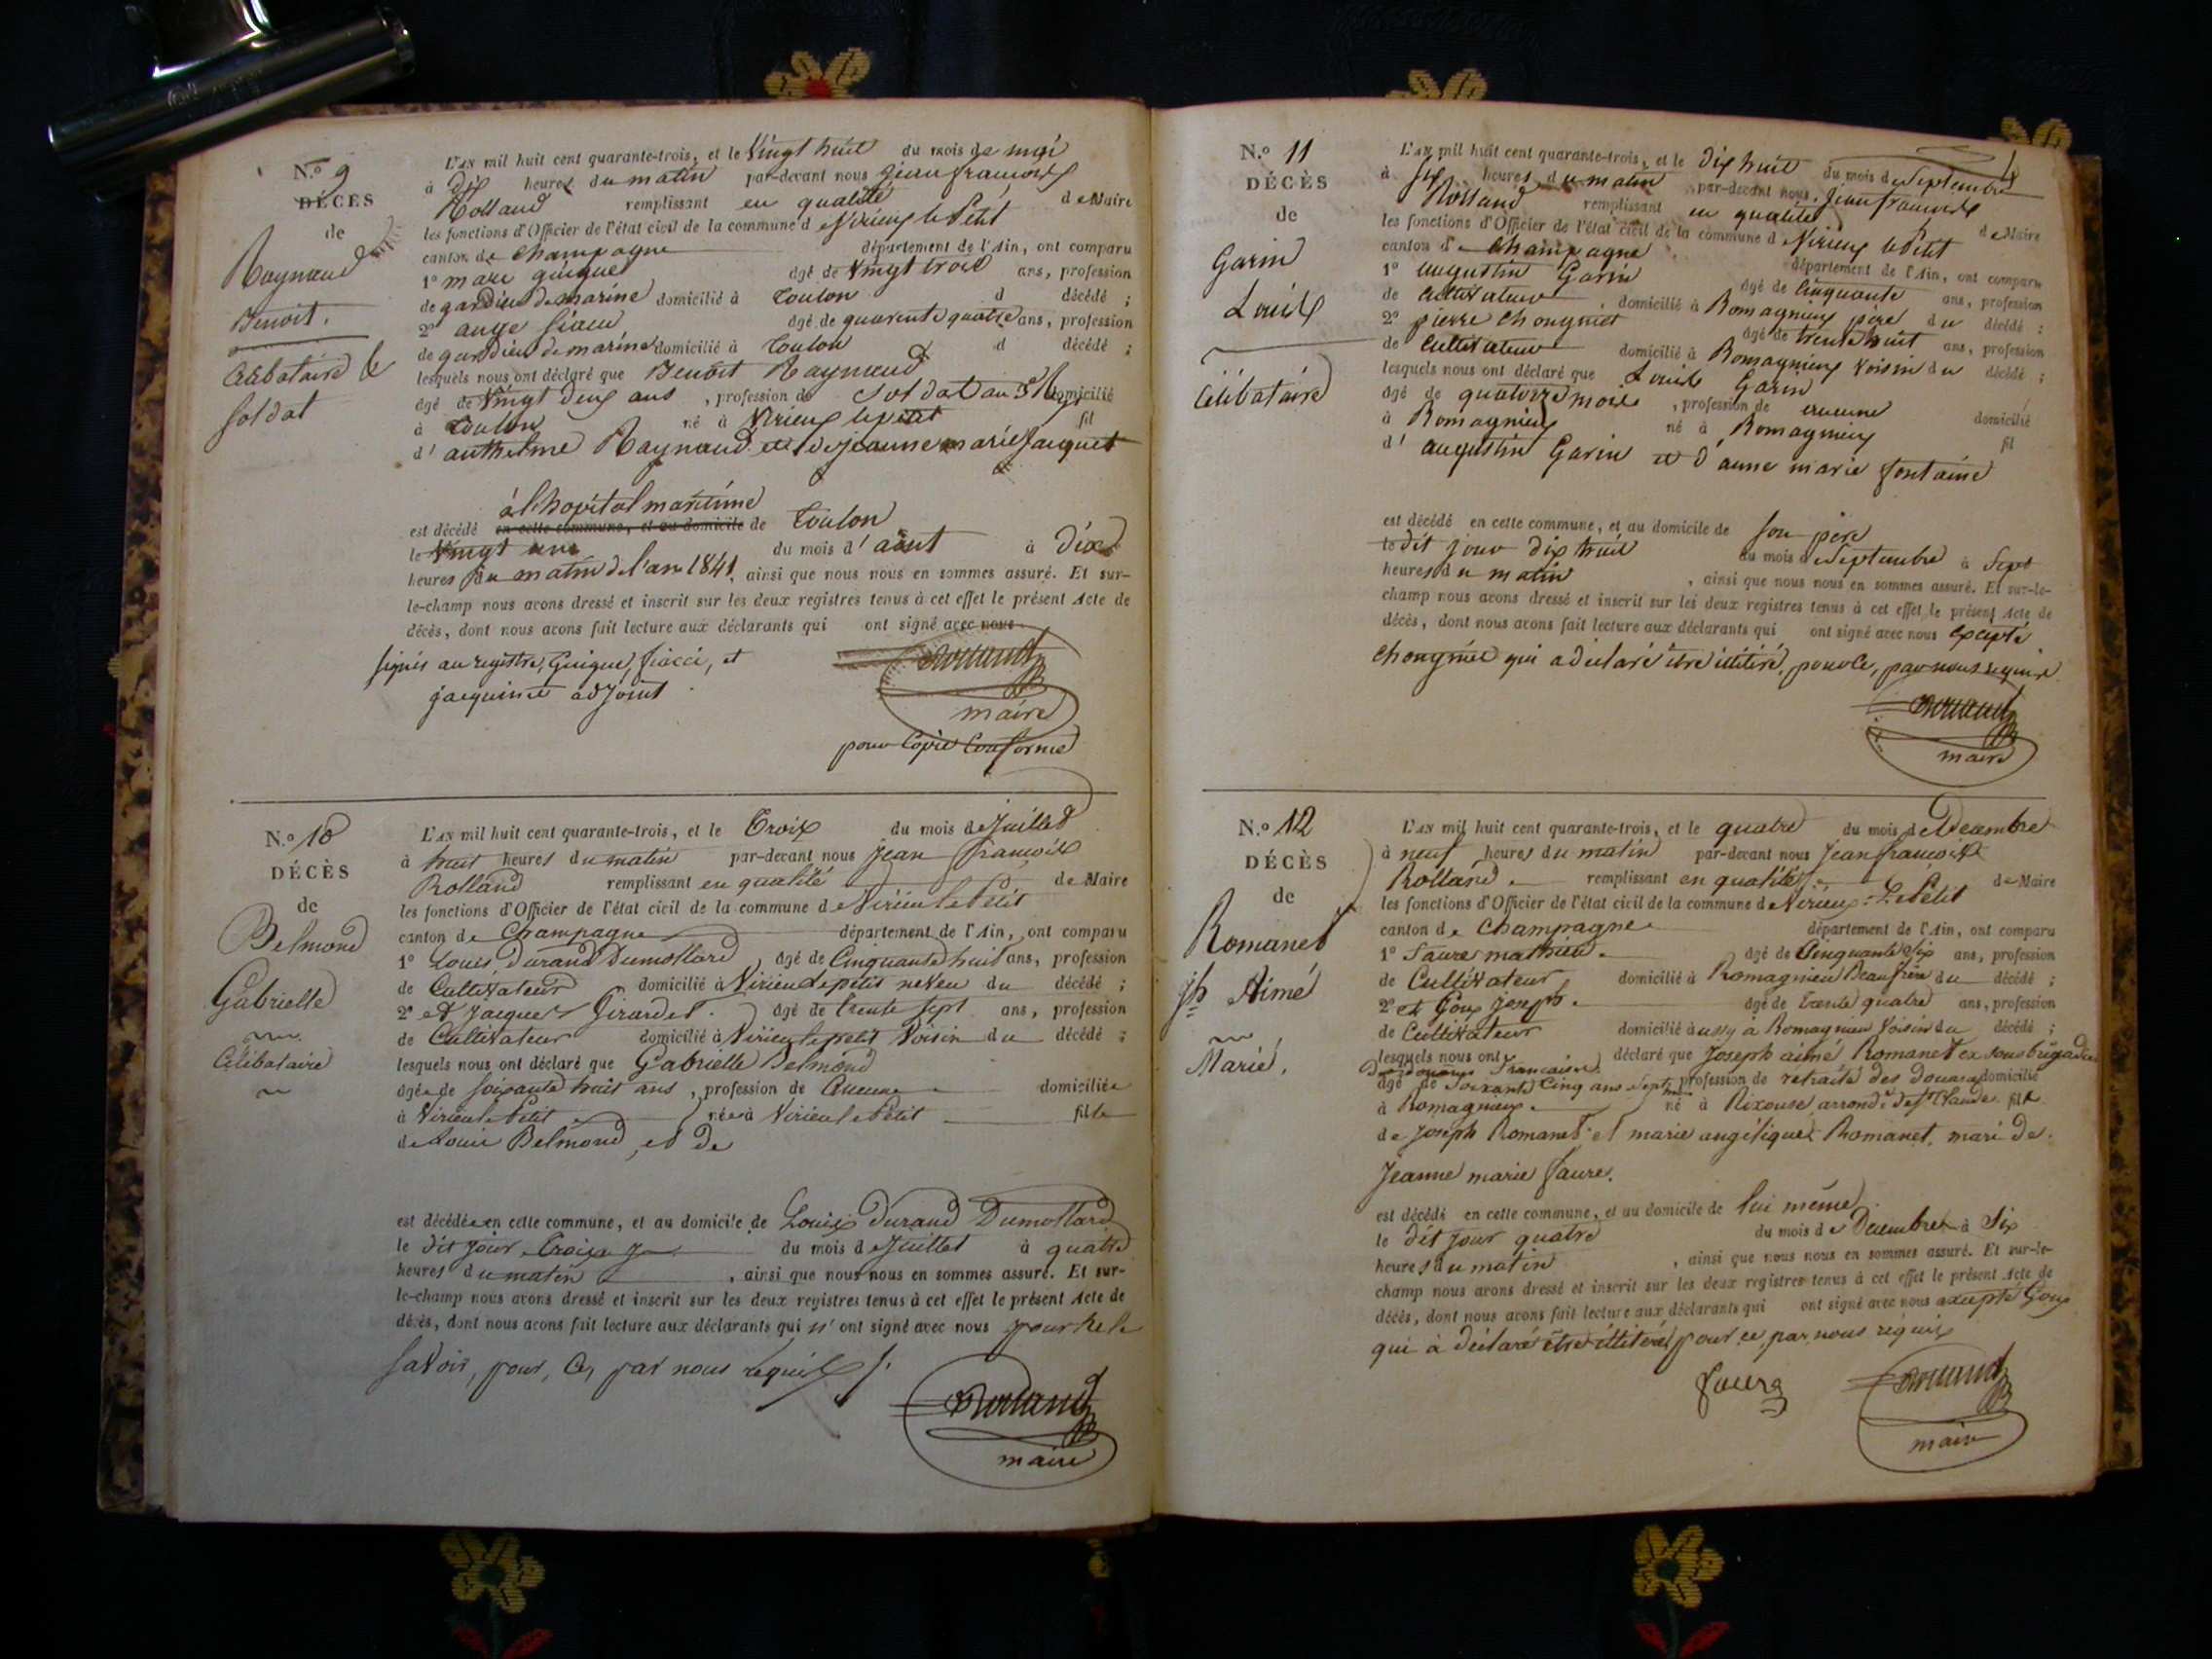 N.o 9
DÉCÈS
de
Raynaud
Benoit.
Célibataire &
Soldat
L'AN mil huit cent quarante-trois, et le Vingt huit du mois de mai
à dix heures du matin par-devant nous jean françois
Rolland remplissant en qualité de Maire
les fonctions d'Officier de l'état civil de la commune de Virieux le Petit
canton de Champagne département de l'Ain, ont comparu
1o marc guigue agé de Vingt trois ans, profession
de gardien de marine domicilié à Toulon d décédé ;
2o ange agé de quarente quatre ans, profession
de gardien de marine domicilié à Toulon d décédé ;
lesquels nous ont déclaré que Benoit Raynaud
agé de Vingt deux ans , profession de Soldat au domicilié
à Toulon né à Virieux le petit fil
d' anthelme Raynaud et de jeanne marie Jacquet
à l'hopital maritime
est décédé en cette commune, et au domicile de Toulon
le Vingt un du mois d' aout à dix
heures du matin de l'an 1841, ainsi que nous nous en sommes assuré. Et sur-
le-champ nous avons dressé et inscrit sur les deux registres tenus à cet effet le présent Acte de
décès, dont nous avons fait lecture aux déclarants qui ont signé avec nous
signés au registre, Guigue, et
jacquinet adjoint
Rolland
maire
pour Copie Conforme
N.o 10
DÉCÈS
de
Belmond
Gabrielle
Célibataire
L'AN mil huit cent quarante-trois, et le Trois du mois de Juillet
à huit heures du matin par-devant nous Jean françois
Rolland remplissant en qualité de Maire
les fonctions d'Officier de l'état civil de la commune de Virieu le Petit
canton de Champagne département de l'Ain, ont comparu
1o Louis Durand Dumollard, agé de Cinquante huit ans, profession
de Cultivateur domicilié à Virieu le petit neveu du décédé ;
2o et Jacques Girardet. agé de trente sept ans, profession
de Cultivateur domicilié à Virieu le petit Voisin du décédé ;
lesquels nous ont déclaré que Gabrielle Belmond
agée de soixante huit ans , profession de Aucune domiciliée
à Virieu le Petit née à Virieu le Petit fille
de Louis Belmond, et de
est décédée en cette commune, et au domicile de Louis Durand Dumollard
le dit jour Trois du mois de Juillet à quatre
heures du matin , ainsi que nous nous en sommes assuré. Et sur-
le-champ nous avons dressé et inscrit sur les deux registres tenus à cet effet le présent Acte de
décès, dont nous avons fait lecture aux déclarants qui n' ont signé avec nous pour ne le
savoir, pour, Ce, par nous requis
Rolland
maire
N.o 11
DÉCÈS
de
Garin
Louis
Célibataire
L'AN mil huit cent quarante-trois, et le dix huit du mois de Septembre
à heures du matin par-devant nous, jean françois
Rolland remplissant en qualité de Maire
les fonctions d'Officier de l'état civil de la commune de Virieux le Petit
canton de Champagne département de l'Ain, ont comparu
1o augustin Garin agé de Cinquante ans, profession
de Cultivateur , domicilié à Romagnieux père du décédé ;
2o pierre Chougnet agé de trente huit ans, profession
de Cultivateur domicilié à Romagnieux voisin du décédé ;
lesquels nous ont déclaré que Louis Garin
agé de quatorze mois , profession de aucune domicilié
à Romagnieux né à Romagnieux fil
d' augustin Garin et d'anne marie fontaine
est décédé en cette commune, et au domicile de son père
le dit jour dix huit du mois de Septembre à Sept
heures du matin , ainsi que nous nous en sommes assuré. Et sur-le-
champ nous avons dressé et inscrit sur les deux registres tenus à cet effet le présent Acte de
décès, dont nous avons fait lecture aux déclarants qui ont signé avec nous excepté
Chougnet qui a déclaré être illitéré, pour Ce, par nous requis
Rolland
maire
N.o 12
DÉCÈS
de
Romanet
jh Aimé
Marié.
L'AN mil huit cent quarante-trois, et le quatre du mois de Décembre
à neuf heures du matin par-devant nous Jean françois
Rolland remplissant en qualité de Maire
les fonctions d'Officier de l'état civil de la commune de Virieux-le Petit
canton de Champagne département de l'Ain, ont comparu
1o Faure mathieu agé de Cinquante Six ans, profession
de Cultivateur domicilié à Romagnieu Beau frère du décédé ;
2o et Goux Joseph agé de trente quatre ans, profession
de Cultivateur domicilié à ussy à Romagnieu Voisin du décédé ;
lesquels nous ont déclaré que Joseph aimé Romanet ex sous brigadier
agé de Soixante Cinq ans profession de retraité des douanes domicilié
à Romagnieux né à Rixouse, arrondt de St Claude. fils
de Joseph Romanet et marie angélique Romanet, mari de
Jeanne marie Faure.
est décédé en cette commune, et au domicile de lui même
le dit jour quatre du mois de Décembre à Six
heures du matin , ainsi que nous nous en sommes assuré. Et sur-le-
champ nous avons dressé et inscrit sur les deux registres tenus à cet effet le présent Acte de
décès, dont nous avons fait lecture aux déclarants qui ont signé avec nous excepté Goux
qui à déclaré être illitéré pour ce par nous requis
Faure
Rolland
maire